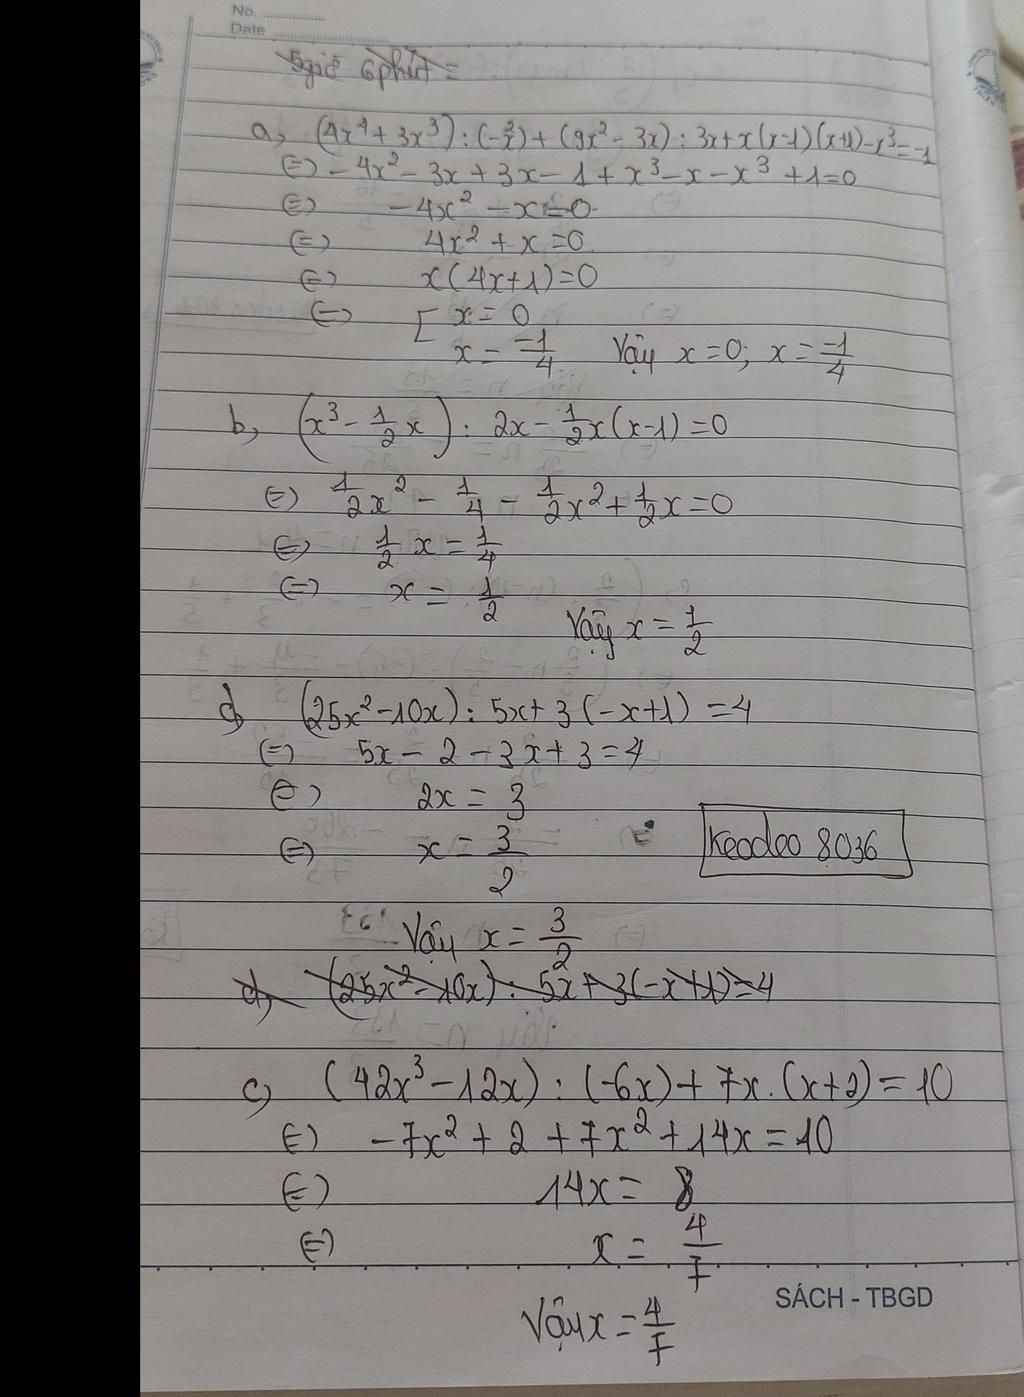 No. ............
Date ............
5 giờ 6 phút =
a, (4x⁴ + 3x³) : (-x³) + (9x² - 3x) : 3x + x(x-1)(x+1) - x³ = -1
⇔ -4x² - 3x + 3x - 1 + x³ - x - x³ + 1 = 0
⇔ -4x² - x = 0
⇔ 4x² + x = 0
⇔ x(4x+1) = 0
⇔ [ x = 0
x = -1/4 Vậy x = 0; x = -1/4
b, (x³ - 1/2 x) : 2x - 1/2 x(x-1) = 0
⇔ 1/2 x² - 1/4 - 1/2 x² + 1/2 x = 0
⇔ 1/2 x = 1/4
⇔ x = 1/2
Vậy x = 1/2
d, (25x² - 10x) : 5x + 3(-x+1) = 4
⇔ 5x - 2 - 3x + 3 = 4
⇔ 2x = 3
⇔ x = 3/2
Keodeo 8036
Vậy x = 3/2
d, (25x² - 10x) : 5x + 3(-x+1) = 4
c, (42x³ - 12x) : (-6x) + 7x.(x+2) = 10
⇔ -7x² + 2 + 7x² + 14x = 10
⇔ 14x = 8
⇔ x = 4/7
SÁCH - TBGD
Vậy x = 4/7